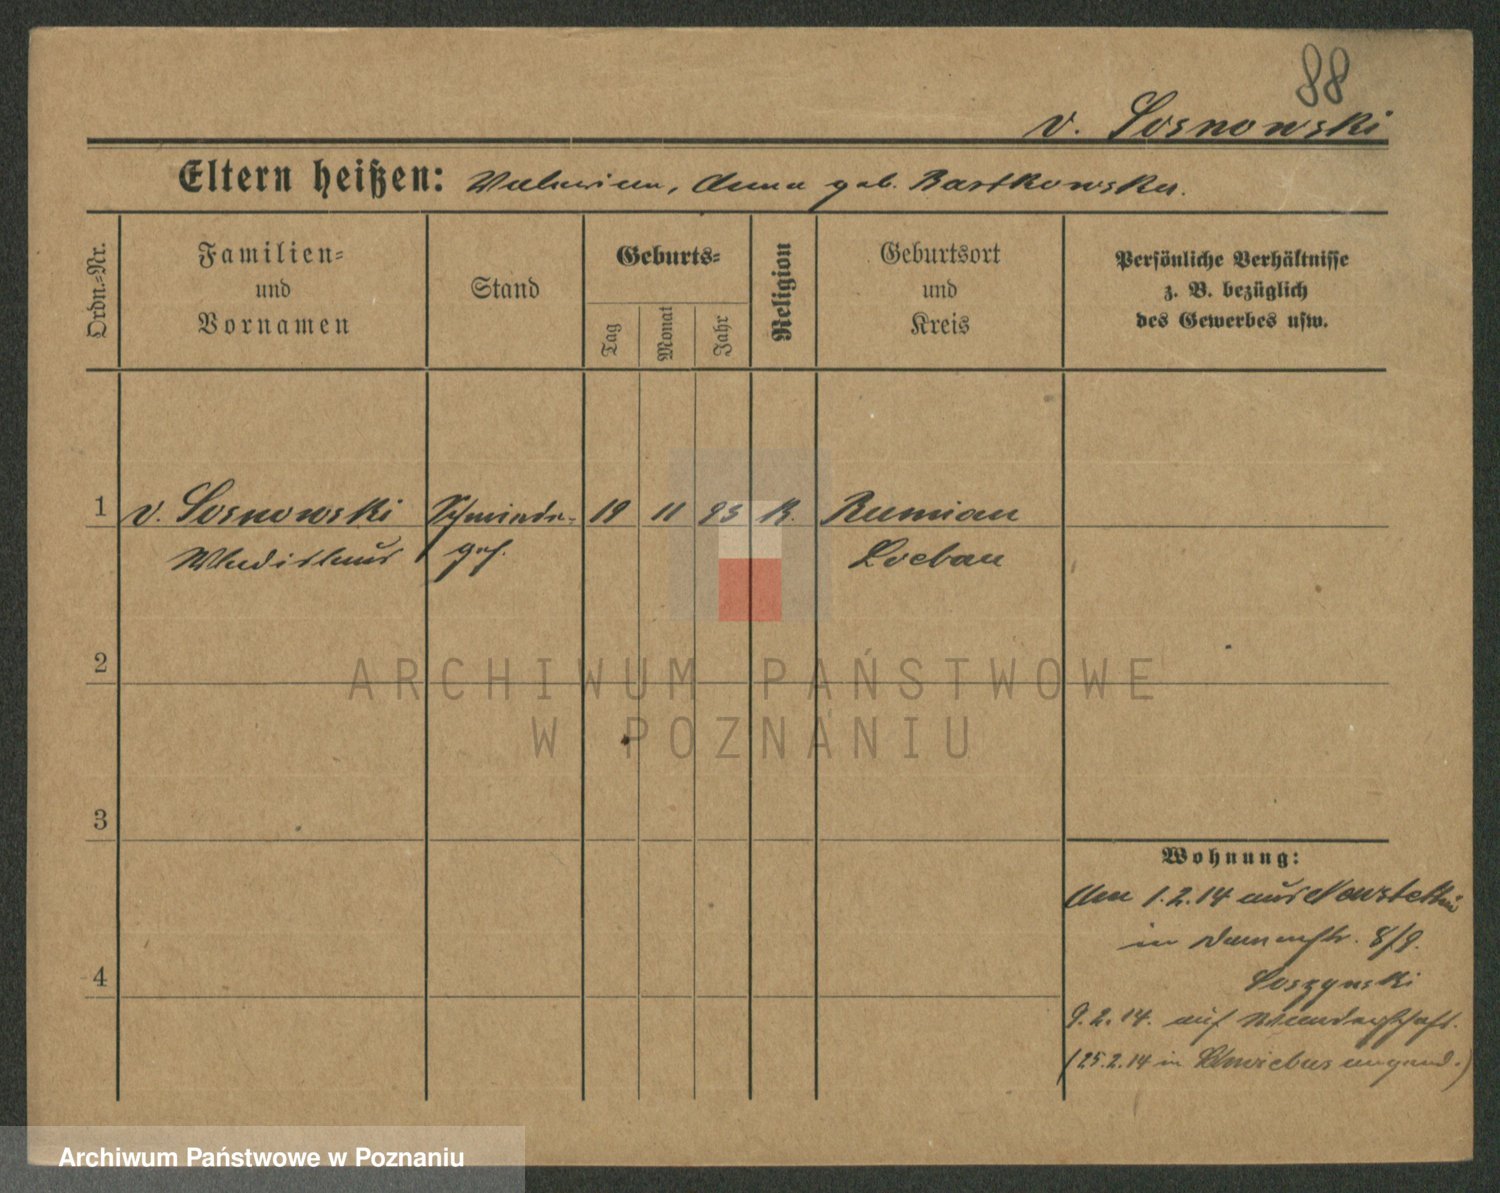 88
v. Sosnowski
Eltern heißen: Valerian, Anna geb. Bartkowska.
Ordn.=Nr.
Familien=
und
Vornamen
Stand
Geburts=
Tag
Monat
Jahr
Religion
Geburtsort
und
Kreis
Persönliche Verhältnisse
z. B. bezüglich
des Gewerbes usw.
1 v. Sosnowski Schmiede- 19 11 95 K. Rumian
Wladislaus ges. Loebau
2
3
4
Wohnung:
Am 1.2.14 aus Neustettin
in 8/9.
Soszynski
9.2.14. auf Wanderschaft.
(25.2.14 in Schwiebus angemd.)
ARCHIWUM PAŃSTWOWE
W POZNANIU
Archiwum Państwowe w Poznaniu